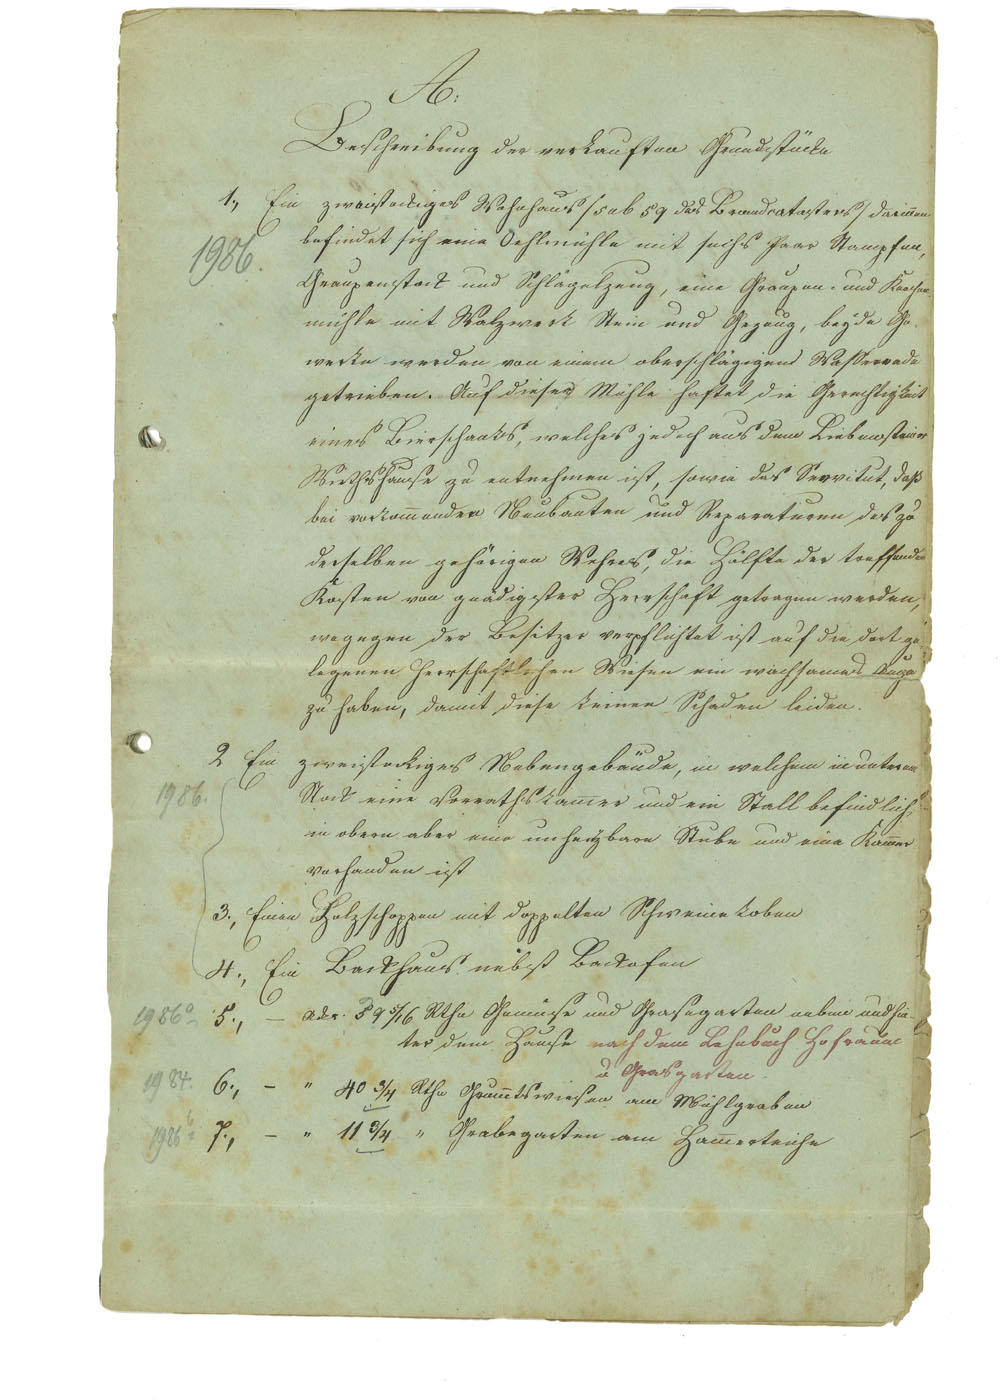 A:
Beschreibung der verkauften Grundstücke
1., Ein zweistockiges Wohnhaus /sub 59 des Brandcatasters/ darinnen
1986.
befindet sich eine Oehlmühle mit sechs Paar Stampfen,
Graupenstock und Schlägelzeug, eine Graupen- und Knochen
mühle mit Walzwerk Stein und Gezeug, beyde Ge-
werke werden von einem oberschlägigen Wasserrade
getrieben. Auf dieser Mühle haftet die Gerechtigkeit
eines Bierschanks, welches jedoch aus dem Liebensteiner
Wirthshause zu entnehmen ist, sowie das Servitut, daß
bei vorkommenden Neubauten und Reparaturen des zu
derselben gehörigen Wehres, die Hälfte der treffenden
Kosten von gnädigster Herrschaft getragen werden,
wogegen der Besitzer verpflichtet ist auf die dort ge-
legenen Herrschaftlichen Wiesen ein wachsames Auge
zu haben, damit diese keinen Schaden leiden.
2 Ein zweistockiges Nebengebäude, in welchem in unteren
1986.
Stock eine Vorrathskammer und ein Stall befindlich,
in obern aber eine unheizbare Stube und eine Kammer
vorhanden ist
3., Einen Holzschoppen mit doppelten Schweinekoben
4., Ein Backhaus nebst Backofen
1986a 5., — Ader. 59 5/16 Rthn Gemüse und Grasegarten neben und hin-
ter dem Hause nach dem Lehnbuch Hofraum
u Grasgarten.
1984. 6., — " 40 3/4 Rthn Grummtswiesen am Mühlgraben
1986b 7., — " 11 3/4 " Grabegarten am Hammerteiche